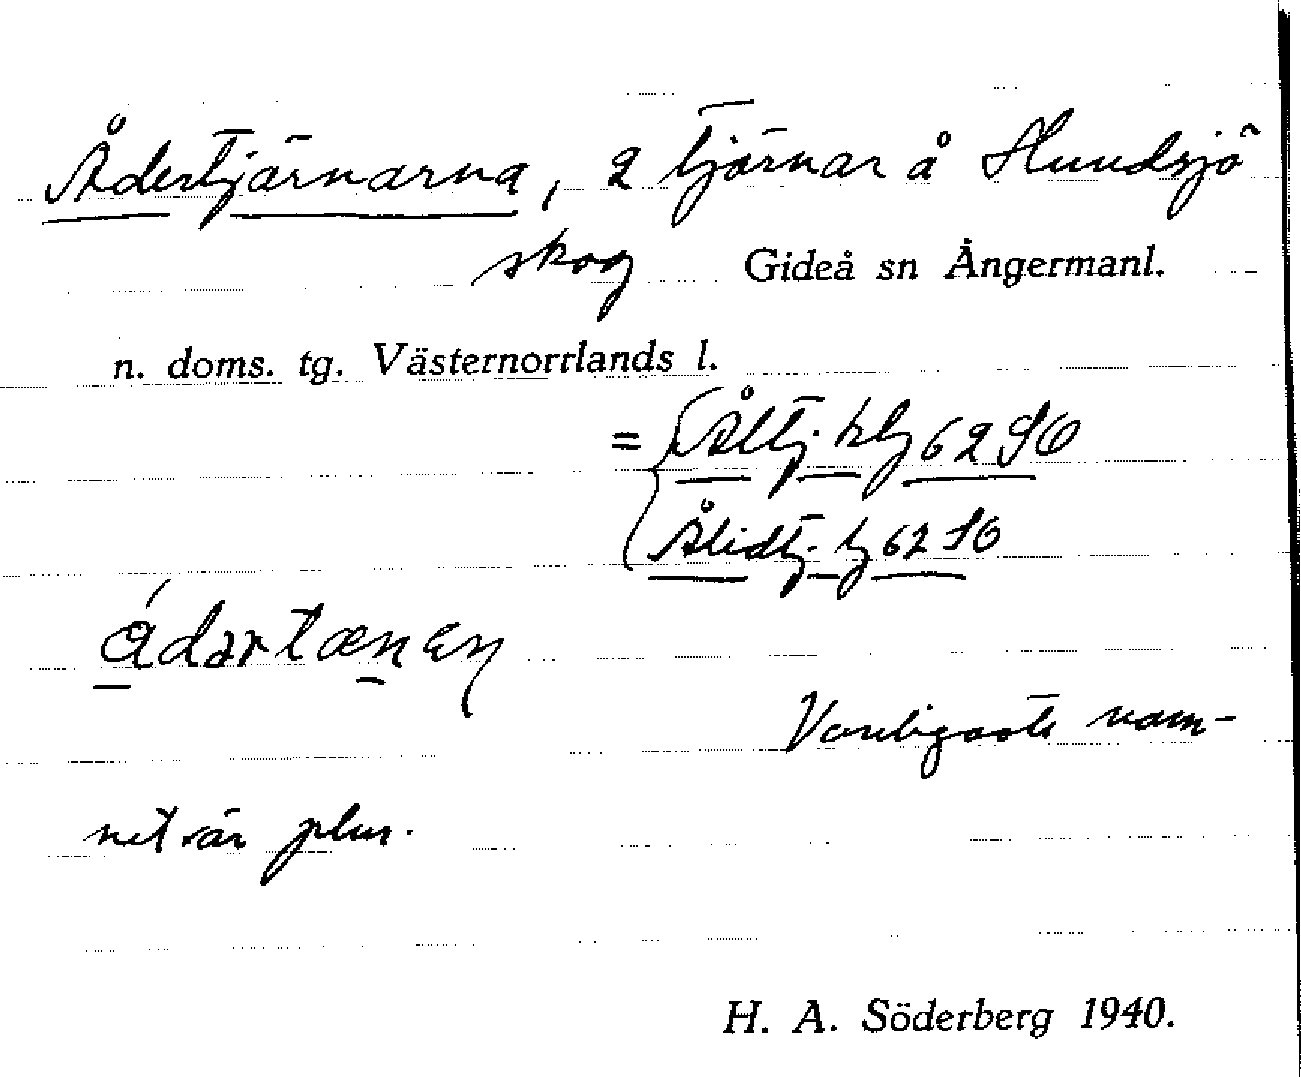 Ådertjärnarna, 2 tjärnar å Hundsjö
skog Gideå sn Ångermanl.
n. doms. tg. Västernorrlands l.
= Åltj. blg 62 SO
Ålidtj. bg 62 SO
Vanligaste nam-
net är plur.
H. A. Söderberg 1940.